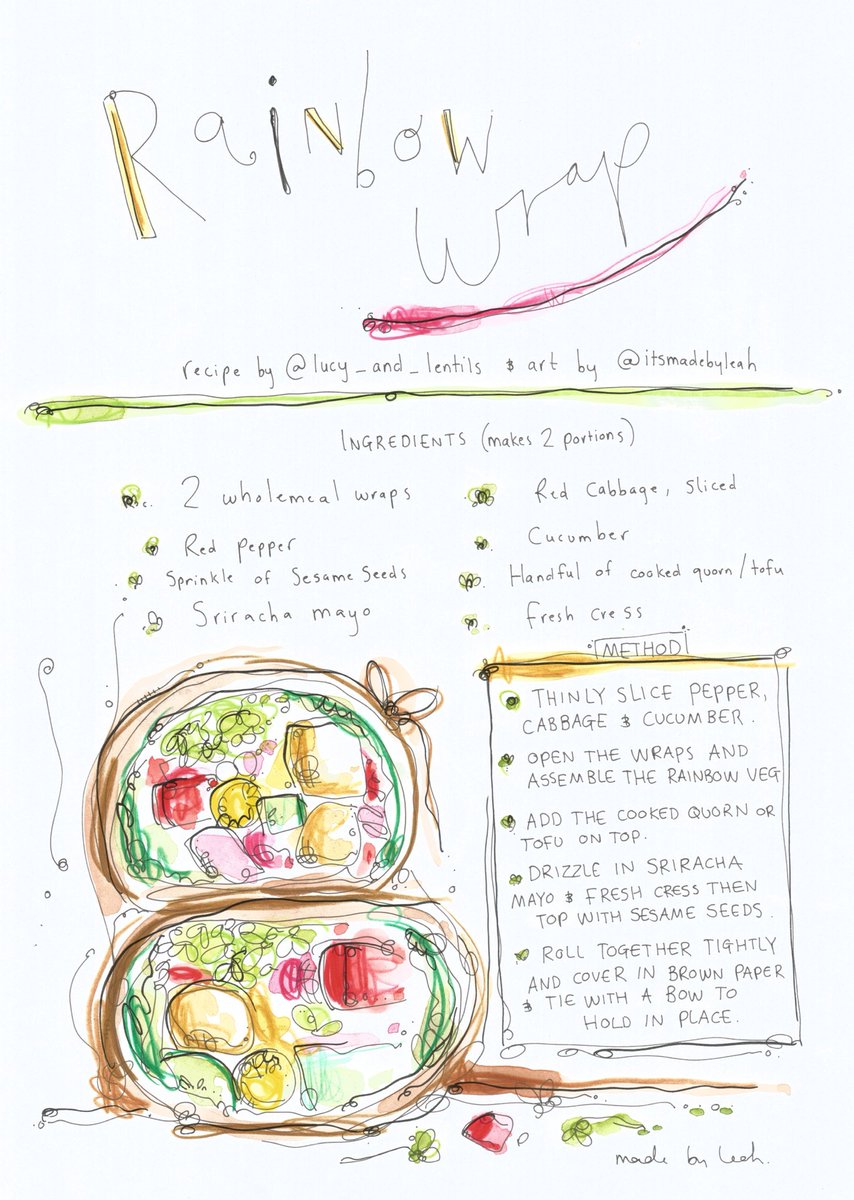 Rainbow
Wrap
recipe by @lucy_and_lentils & art by @itsmadebyleah
INGREDIENTS (makes 2 portions)
2 wholemeal wraps
Red pepper
Sprinkle of Sesame Seeds
Sriracha mayo
Red Cabbage, sliced
Cucumber
Handful of cooked quorn/tofu
fresh cress
METHOD
THINLY SLICE PEPPER,
CABBAGE & CUCUMBER.
OPEN THE WRAPS AND
ASSEMBLE THE RAINBOW VEG
ADD THE COOKED QUORN OR
TOFU ON TOP.
DRIZZLE IN SRIRACHA
MAYO & FRESH CRESS THEN
TOP WITH SESAME SEEDS.
ROLL TOGETHER TIGHTLY
AND COVER IN BROWN PAPER
& TIE WITH A BOW TO
HOLD IN PLACE.
made by leah.